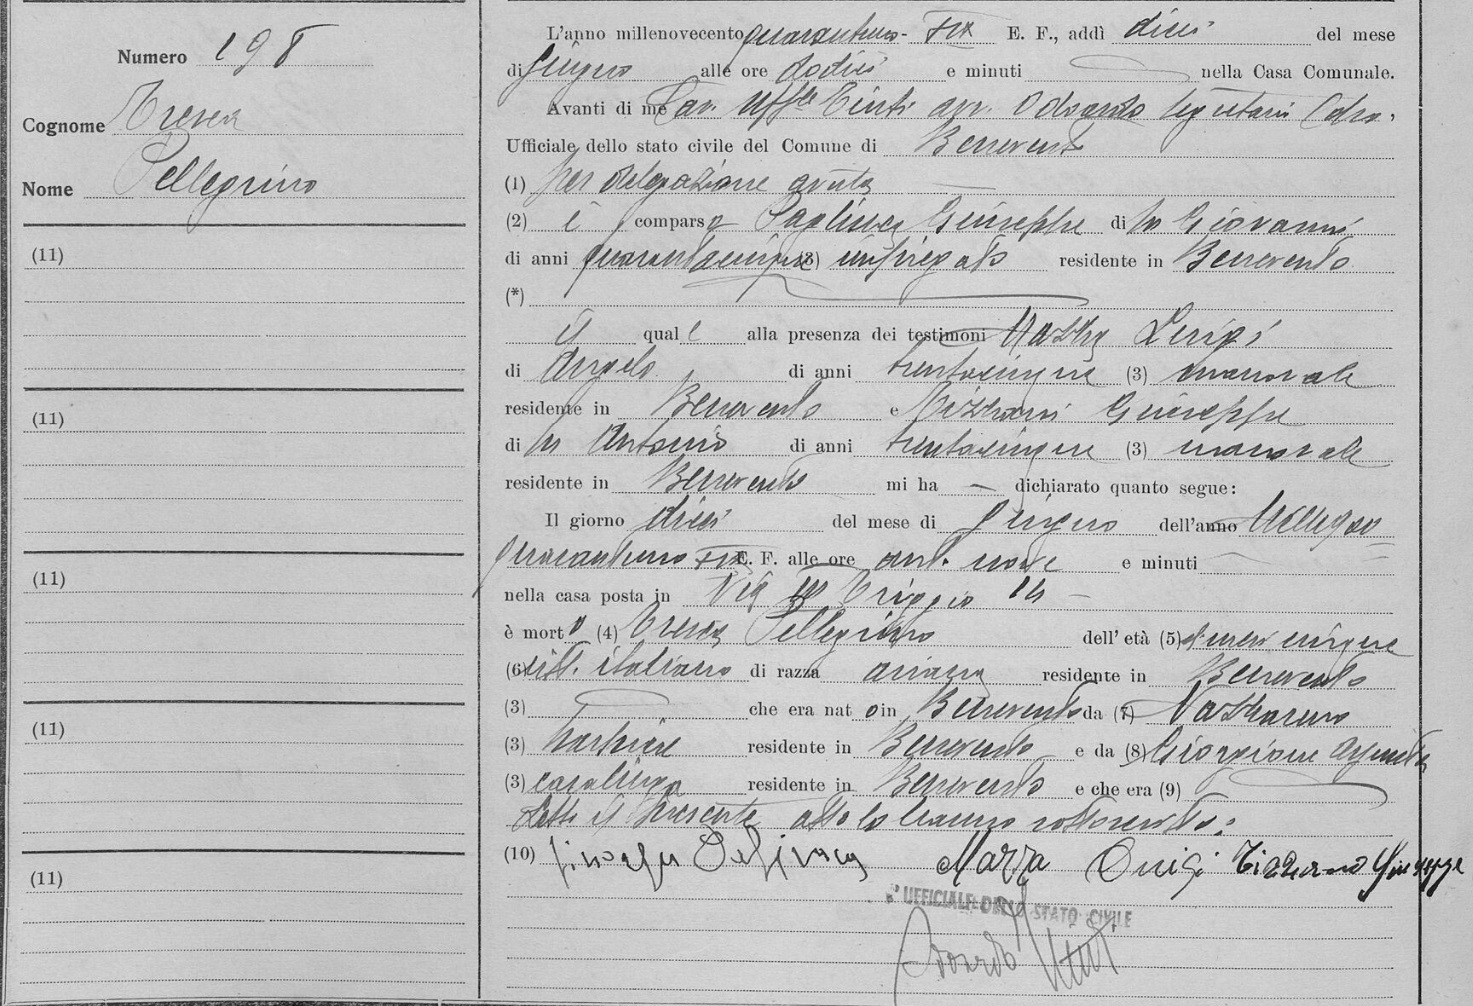 Numero 198
Cognome
Nome Pellegrino
(11)
(11)
(11)
(11)
(11)
L'anno millenovecento quarantuno - XIX E. F., addì dieci del mese
di giugno alle ore dodici e minuti nella Casa Comunale.
Avanti di me Cav. Uff.le avv. Odoardo
Ufficiale dello stato civile del Comune di Benevento
(1) per delegazione avuta
(2) è comparso Giuseppe di fu Giovanni
di anni quarantacinque (3) impiegato residente in Benevento
(*)
il quale alla presenza dei testimoni Mazza Luigi
di Angelo di anni trentacinque (3) manovale
residente in Benevento e Tizzani Giuseppe
di fu Antonio di anni trentacinque (3) manovale
residente in Benevento mi ha dichiarato quanto segue:
Il giorno dieci del mese di giugno dell'anno
quarantuno XIX E. F. alle ore ant. nove e minuti
nella casa posta in Via Triggio
è morto (4) Pellegrino dell'età (5) di mesi cinque
(6) citt. italiano di razza ariana residente in Benevento
(3) che era nato in Benevento da (7) Nazzareno
(3) barbiere residente in Benevento e da (8) Giorgione
(3) casalinga residente in Benevento e che era (9)
Letto il presente atto lo hanno sottoscritto:
(10) Mazza Luigi Giuseppe
UFFICIALE DELLO STATO CIVILE